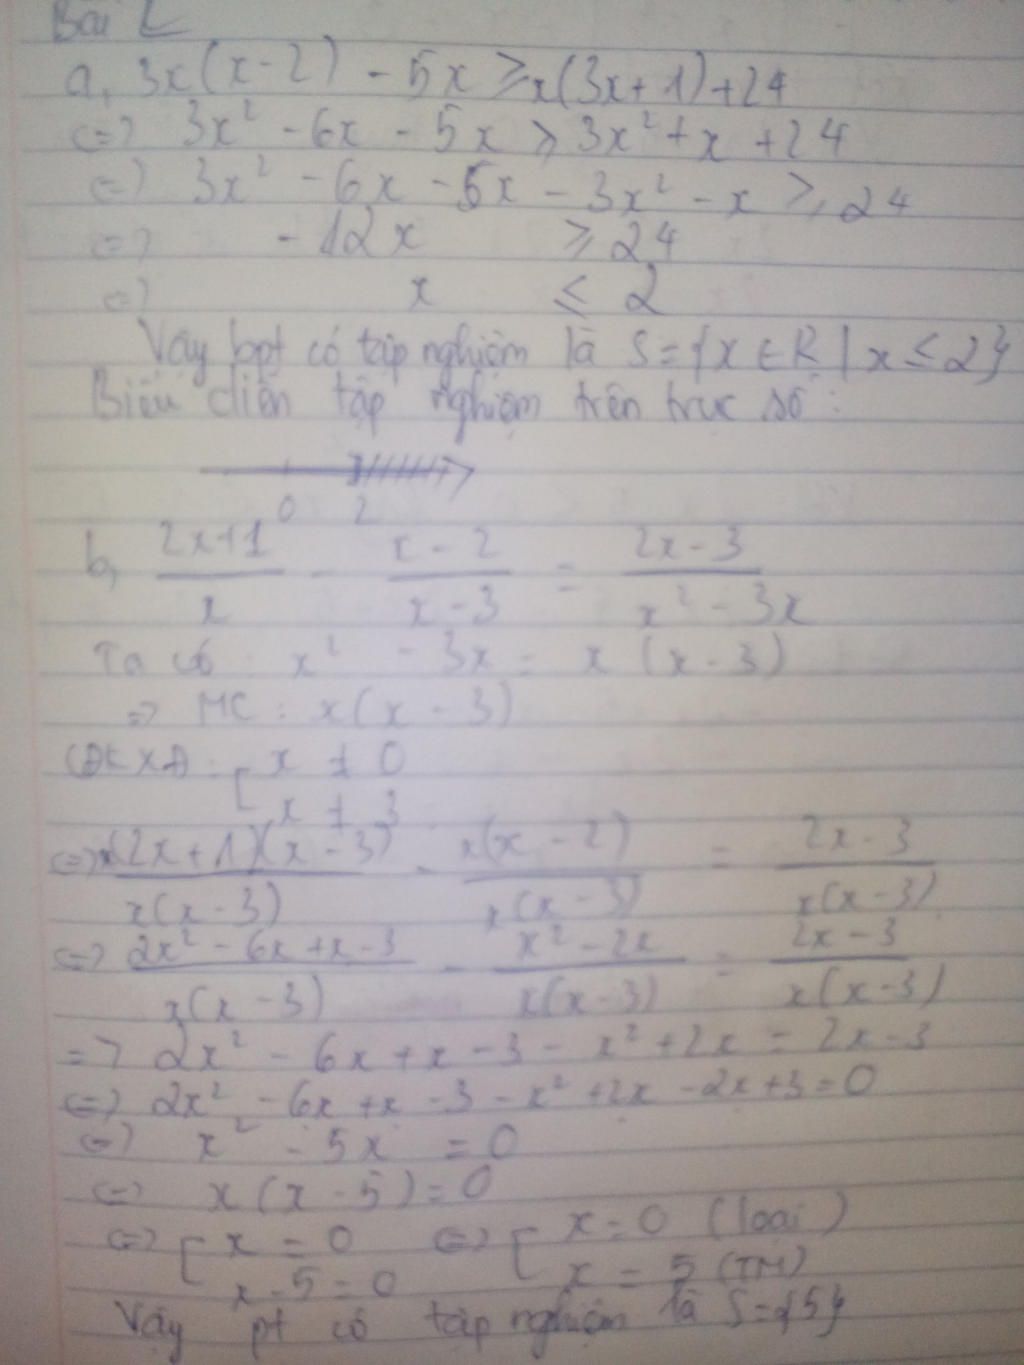 Bài 2
a, 3x(x-2) - 5x ≥ x(3x+1)+24
<=> 3x² - 6x - 5x ≥ 3x² + x + 24
<=> 3x² - 6x - 5x - 3x² - x ≥ 24
<=> - 12x ≥ 24
<=> x ≤ 2
Vậy bpt có tập nghiệm là S={x∈R | x ≤ 2}
Biểu diễn tập nghiệm trên trục số:
0 2
b, (2x+1)/x - (x-2)/(x-3) = (2x-3)/(x²-3x)
Ta có: x² - 3x = x(x-3)
=> MC: x(x-3)
ĐKXĐ: [x ≠ 0
x ≠ 3
<=> (2x+1)(x-3)/x(x-3) - x(x-2)/x(x-3) = (2x-3)/x(x-3)
<=> (2x² - 6x + x - 3)/x(x-3) - (x² - 2x)/x(x-3) = (2x-3)/x(x-3)
=> 2x² - 6x + x - 3 - x² + 2x = 2x - 3
<=> 2x² - 6x + x - 3 - x² + 2x - 2x + 3 = 0
<=> x² - 5x = 0
<=> x(x-5) = 0
<=> [x = 0 <=> [x = 0 (loại)
x - 5 = 0 x = 5 (TM)
Vậy pt có tập nghiệm là S={5}